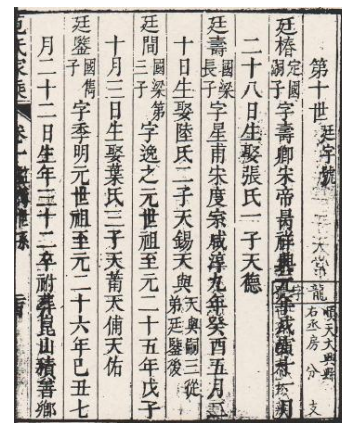 順天大興縣
右丞房分支
龍字
第十世 廷字號
廷椿 定國嗣子 字壽卿宋帝昺祥興元年戊寅 月
二十八日生娶張氏一子天德
廷壽 國梁長子 字星甫宋度宗咸淳九年癸酉五月三
十日生娶陸氏二子天錫天與 天與嗣三從弟廷鑒後
廷間 國梁第三子 字逸之元世祖至元二十五年戊子
十月三日生娶葉氏三子天莆天俌天佑
廷鑒 國儁子 字季明元世祖至元二十六年己丑七
月二十二日生年三十二卒祔葬崑山積善鄉
氏家乘 卷一